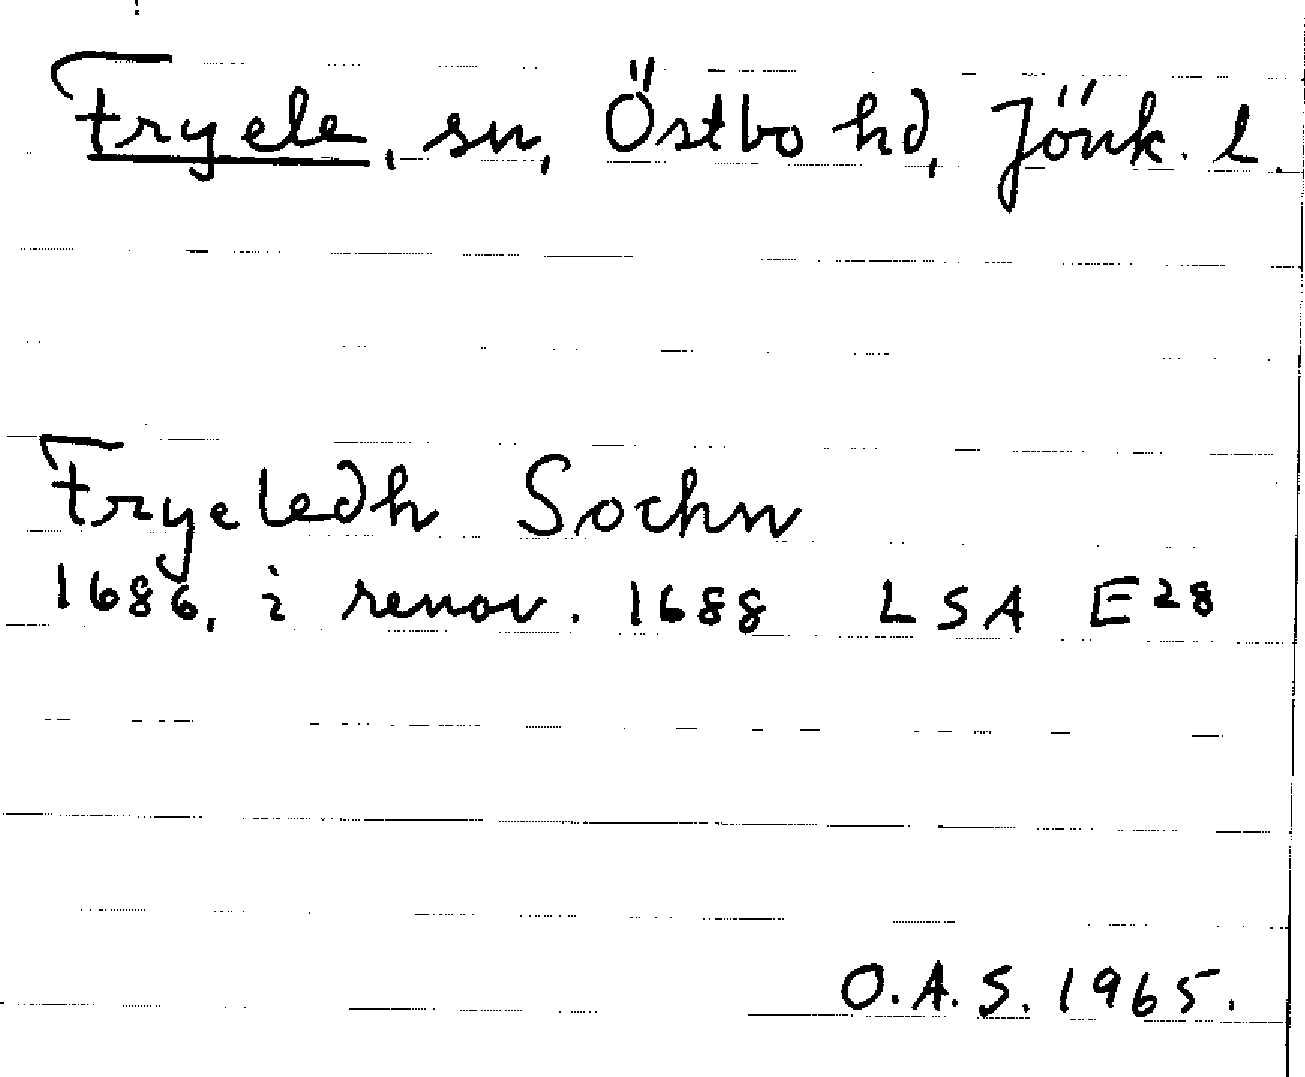 Fryele, sn, Östbo hd, Jönk. l.
Fryeledh Sochn
1686, i renov. 1688 LSA E28
O.A.S. 1965.